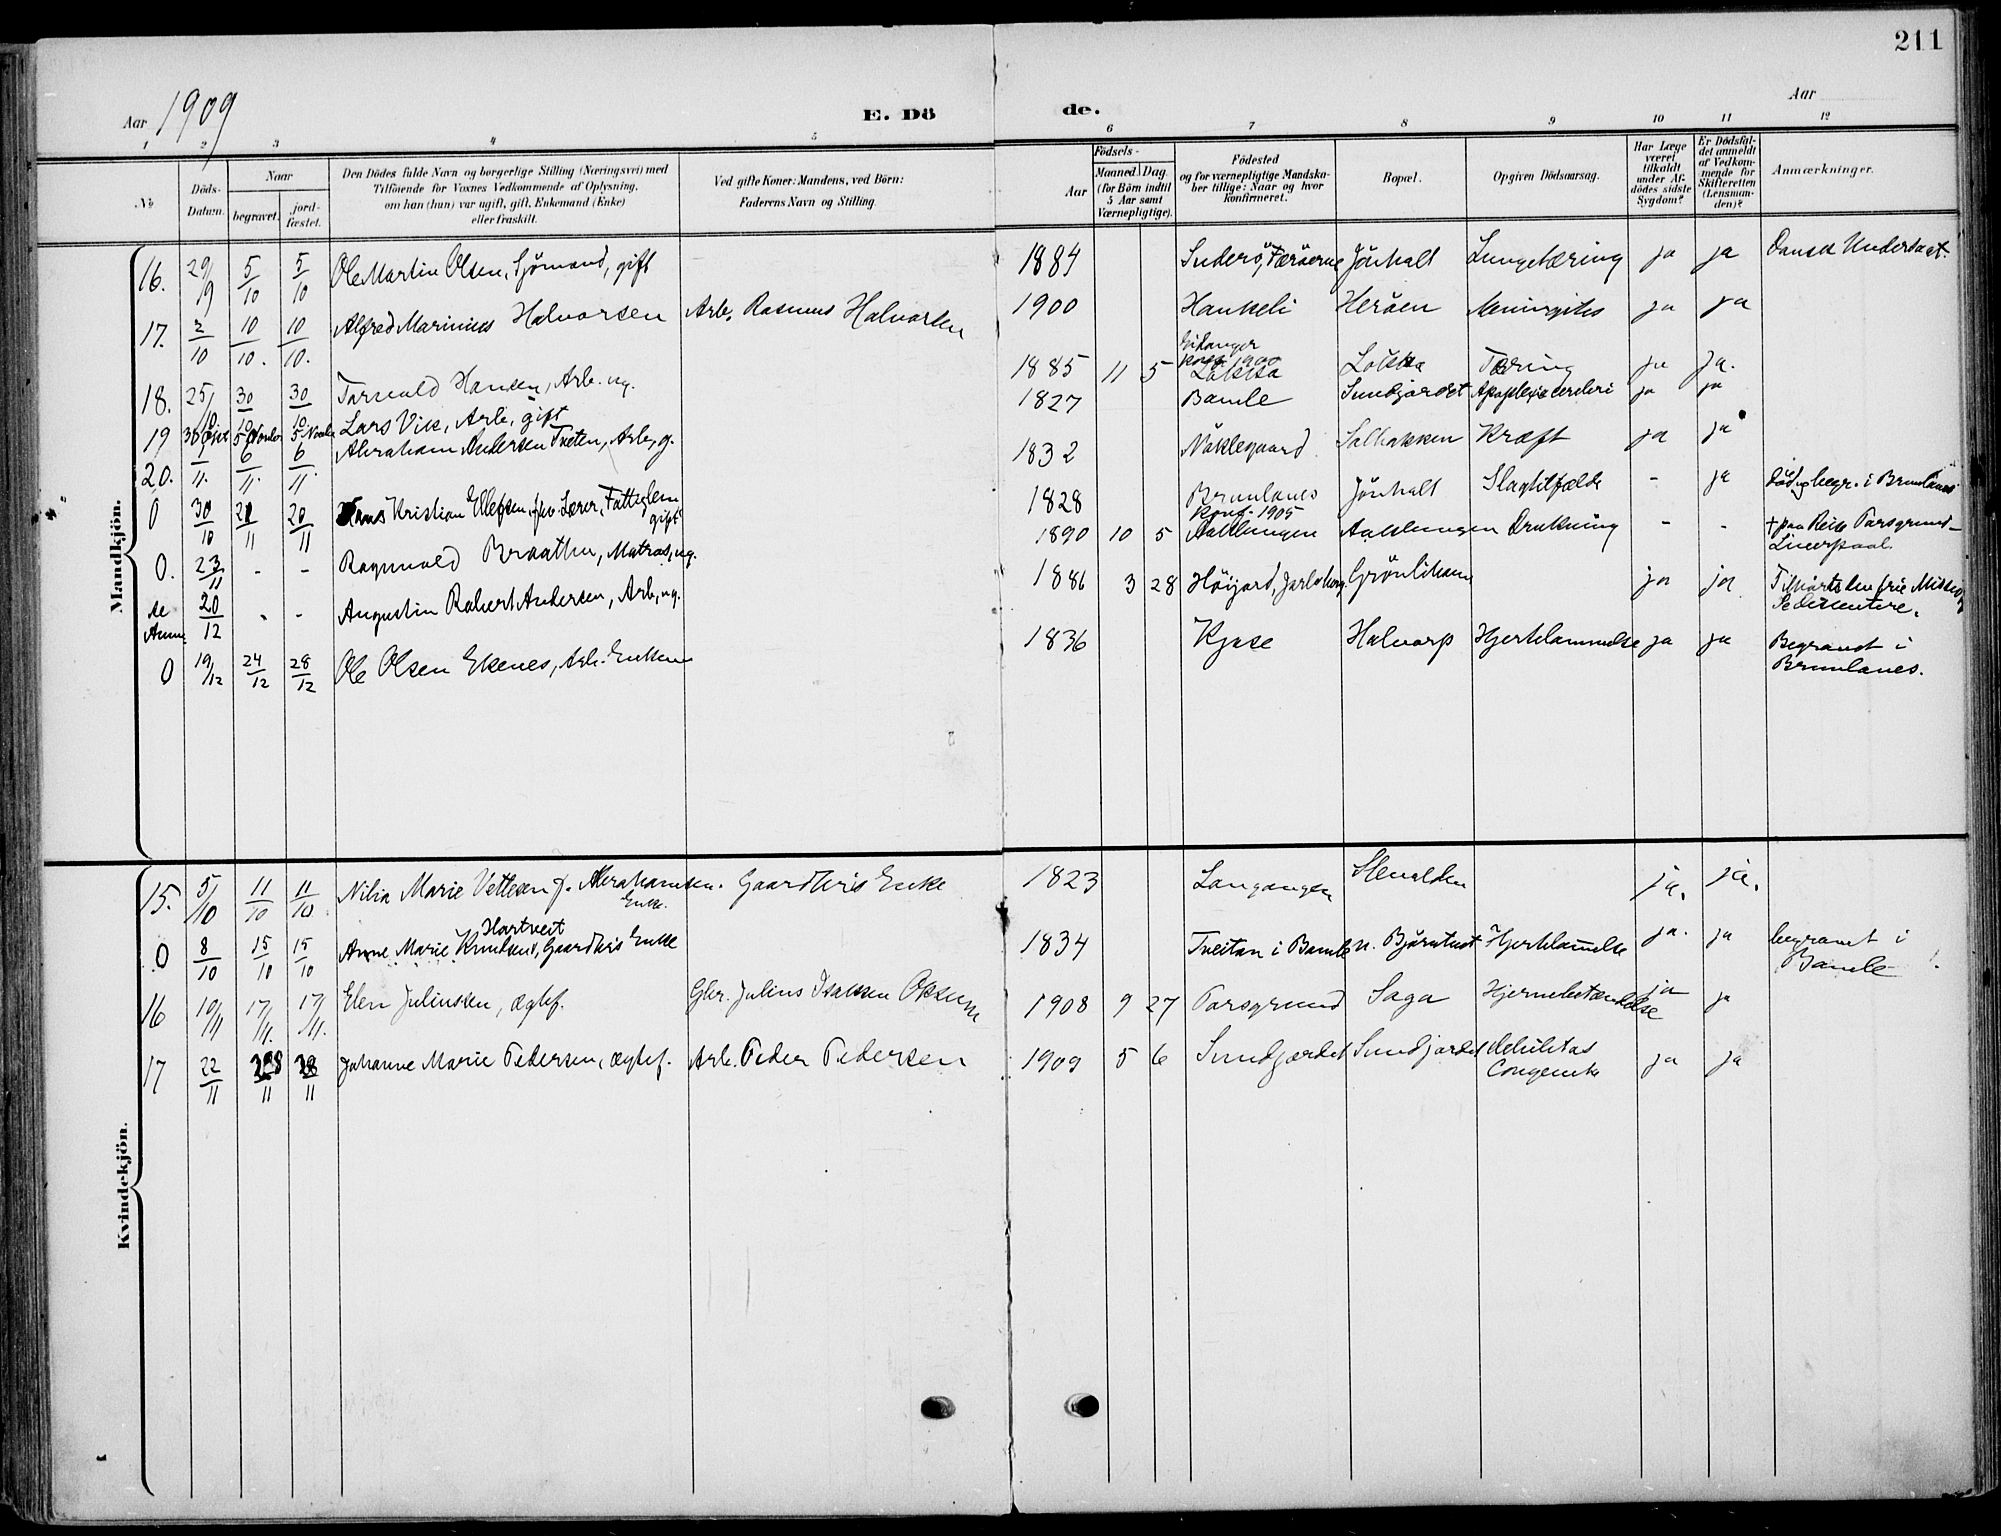 211
Aar 1909
E. Dö
de.
Aar
1 2 3 4 5 6 7 8 9 10 11 12
№
Döds-Datum.
Naar
begravet.
jord-fæstet.
Den Dödes fulde Navn og borgerlige Stilling (Næringsvei) med
Tilföiende for Voxnes Vedkommende af Oplysning,
om han (hun) var ugift, gift, Enkemand (Enke)
eller fraskilt.
Ved gifte Koner: Mandens, ved Börn:
Faderens Navn og Stilling.
Födsels-
Aar
Maaned. Dag.
(for Börn indtil
5 Aar samt
Værnepligtige).
Födested
og for værnepligtige Mandska-
ber tillige: Naar og hvor
konfirmeret.
Bopæl.
Opgiven Dödsaarsag.
Har Læge
været
tilkaldt
under Af-
dödes sidste
Sygdom?
Er Dödsfal-
det anmeldt
af Vedkom-
mende for
Skifteretten
(Lensman-
den)?
Anmærkninger.
Mandkjön.
16. 29/9 5/10 5/10 Ole Martin Olsen, Sjömand, gift 1884 Suderö, Færöerne Jönholt Lungetæring ja ja Dansk Undersaat.
17. 2/10 10/10. 10/10. Alfred Marinius Halvorsen Arb. Rasmus Halvorsen 1900 Hankeli Heröen Meningites ja ja
18. 25/10 30/10 30/10 Torvald Hansen, Arb. ug. 1885 11 5 Eidanger
Konf. 1900
Løkka Løkka Tæring ja ja.
19 30 Oct 5 Novbr 5 Novbr Lars Vik, Arb, gift 1827 Bamle Sundjordet Apoplexia cerebri ja ja
20. 1/11. 6/11. 6/11. Abraham Andersen Tveten, Arb, g. 1832 Nøklegaard Salbakken Kræft ja ja
0 30/10 20/11 20/11 Hans Kristian Ellefsen, fhv. Lærer, Fattiglem
gift 1828 Brunlanes Jönholt Slagtilfælde - ja Död og begr. i Brunlanes
0. 23/11 - - Ragnvald Braathen, Matros, ug. 1890 10 5 Konf. 1905
Aaklungen Aaklungen Drukning - - † paa Reise Porsgrund-
Liverpool.
se Anm. 20/12 - - Augustin Robert Andersen, Arb, ug. 1886 3 28 Höijord, Jarlsberg Grönlihavn ja ja
Dissentere.
0 19/12 24/12 28/12 Ole Olsen Ekenes, Arb. Enkem 1836 Kjose Halvorp Hjertelammelse ja ja Begravet i
Brunlanes.
Kvindekjön.
15. 5/10 11/10 11/10 Nilia Marie Vettesen f. Abrahamsen. Enke. Gaardbrs Enke 1823 Langangen Stenalden ja. ja.
0 8/10 15/10 15/10 Anne Marie Knudsen, Hartveit Gaardbrs Enke 1834 Tveitan i Bamle n. Bjørntvet Hjertelammelse ja. ja begravet i
Bamle
16 10/11 17/11. 17/11. Elen Juliussen, ægtef. Gbr. Julius Isaksen Oksum 1908 9 27 Porsgrund Saga Hjernebetændelse ja ja
17 22/11 28/11 28/11 Johanne Marie Pedersen, ægtef. Arb. Peder Pedersen 1909 5 6 Sundjordet Sundjordet Debilitas
Congenita ja ja